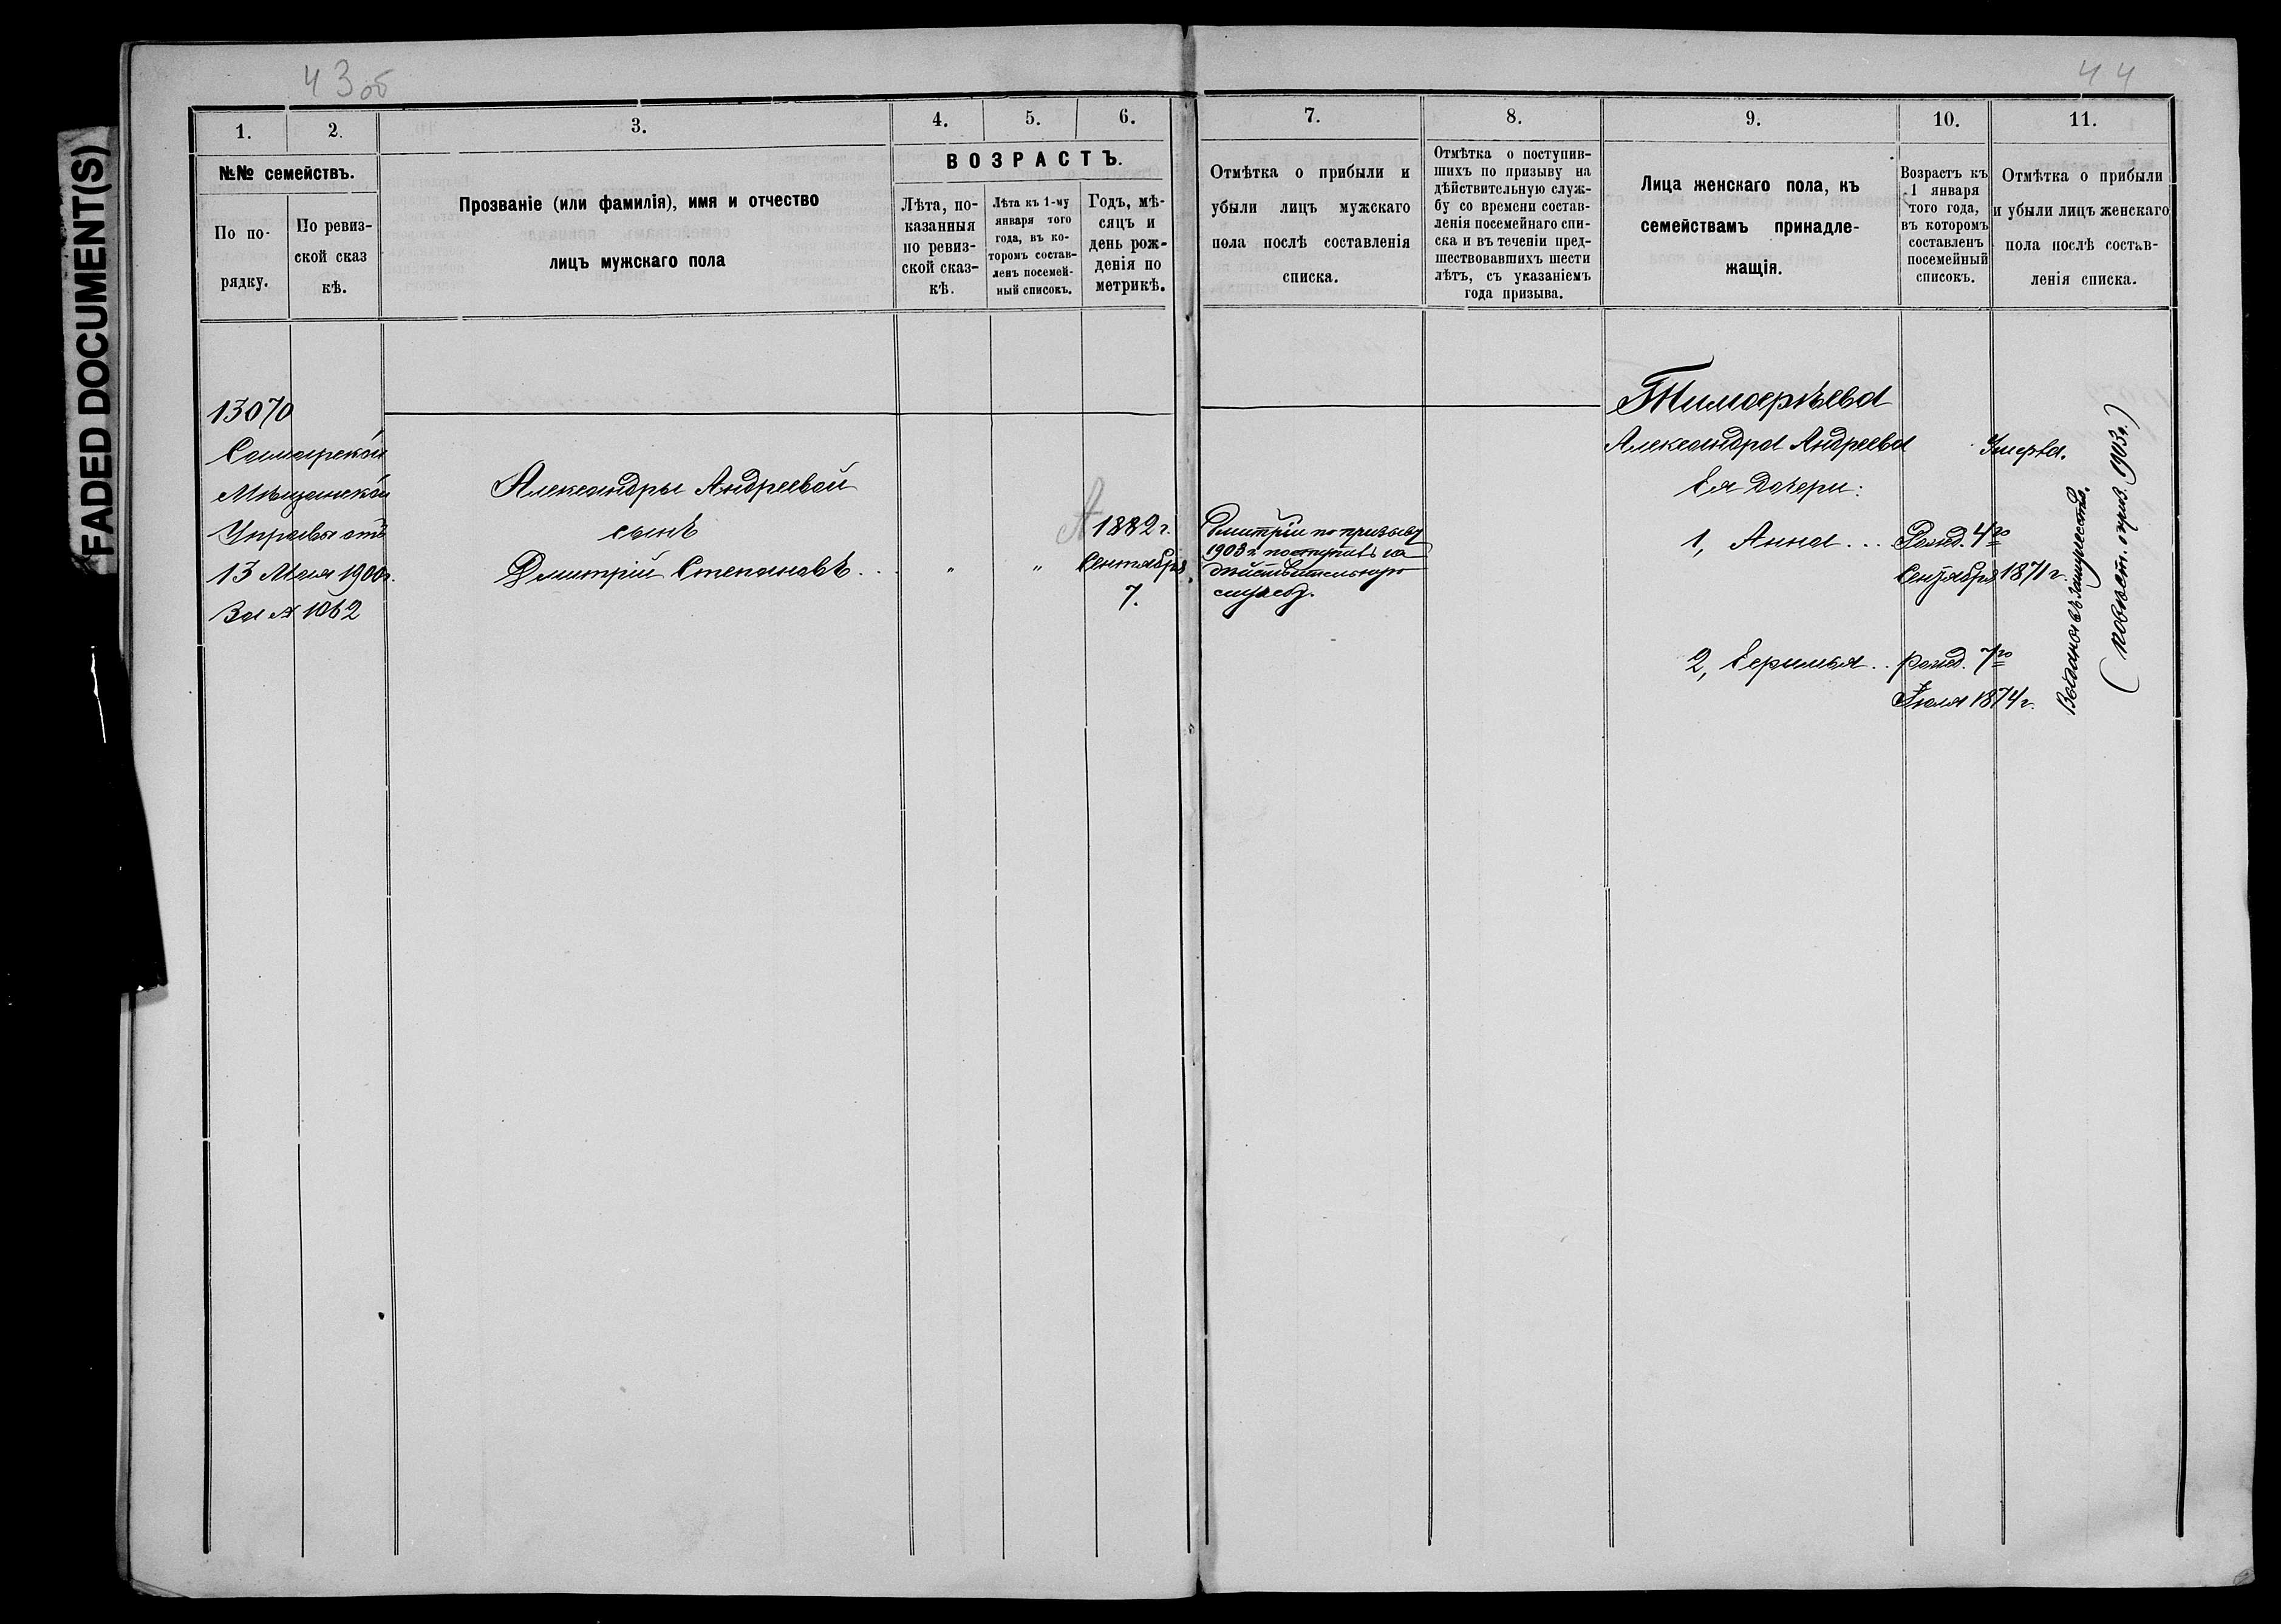 FADED DOCUMENT(S)
43об
44
1.
2.
3.
4.
5.
6.
7.
8.
9.
10.
11.
№№ семействъ.
По по-
рядку.
По ревиз-
ской сказ
кѣ.
Прозваніе (или фамилія), имя и отчество
лицъ мужскаго пола
ВОЗРАСТЪ.
Лѣта, по-
казанныя
по ревиз-
ской сказ-
кѣ.
Лѣта къ 1-му
января того
года, въ ко-
торомъ состав-
ленъ посемей-
ный списокъ.
Годъ, мѣ-
сяцъ и
день рож-
денія по
метрикѣ.
Отмѣтка о прибыли и
убыли лицъ мужскаго
пола послѣ составленія
списка.
Отмѣтка о поступив-
шихъ по призыву на
дѣйствительную служ-
бу со времени состав-
ленія посемейнаго спи-
ска и въ теченіи пред-
шествовавшихъ шести
лѣтъ, съ указаніемъ
года призыва.
Лица женскаго пола, къ
семействамъ принадле-
жащія.
Возрастъ къ
1 января
того года,
въ которомъ
составленъ
посемейный
списокъ.
Отмѣтка о прибыли
и убыли лицъ женскаго
пола послѣ состав-
ленія списка.
13070
Самарской
Мѣщанской
Управы отъ
13 Мая 1900г.
За № 1062
Александры Андреевой
сынъ
Дмитрій Степановъ . .
"
"
1882 г.
Сентября
7.
Дмитрій по призыву
1903 г. поступилъ на
дѣйствительную
службу.
Тимоѳѣева
Александра Андреева
Ея дочери:
1, Анна . . .
Рожд. 4го
Сентября 1871 г.
2, Еримья . .
рожд. 7го
Іюля 1874 г.
Умерла.
Выданы въ замужество.
( повѣст. приз. 1903 г. )